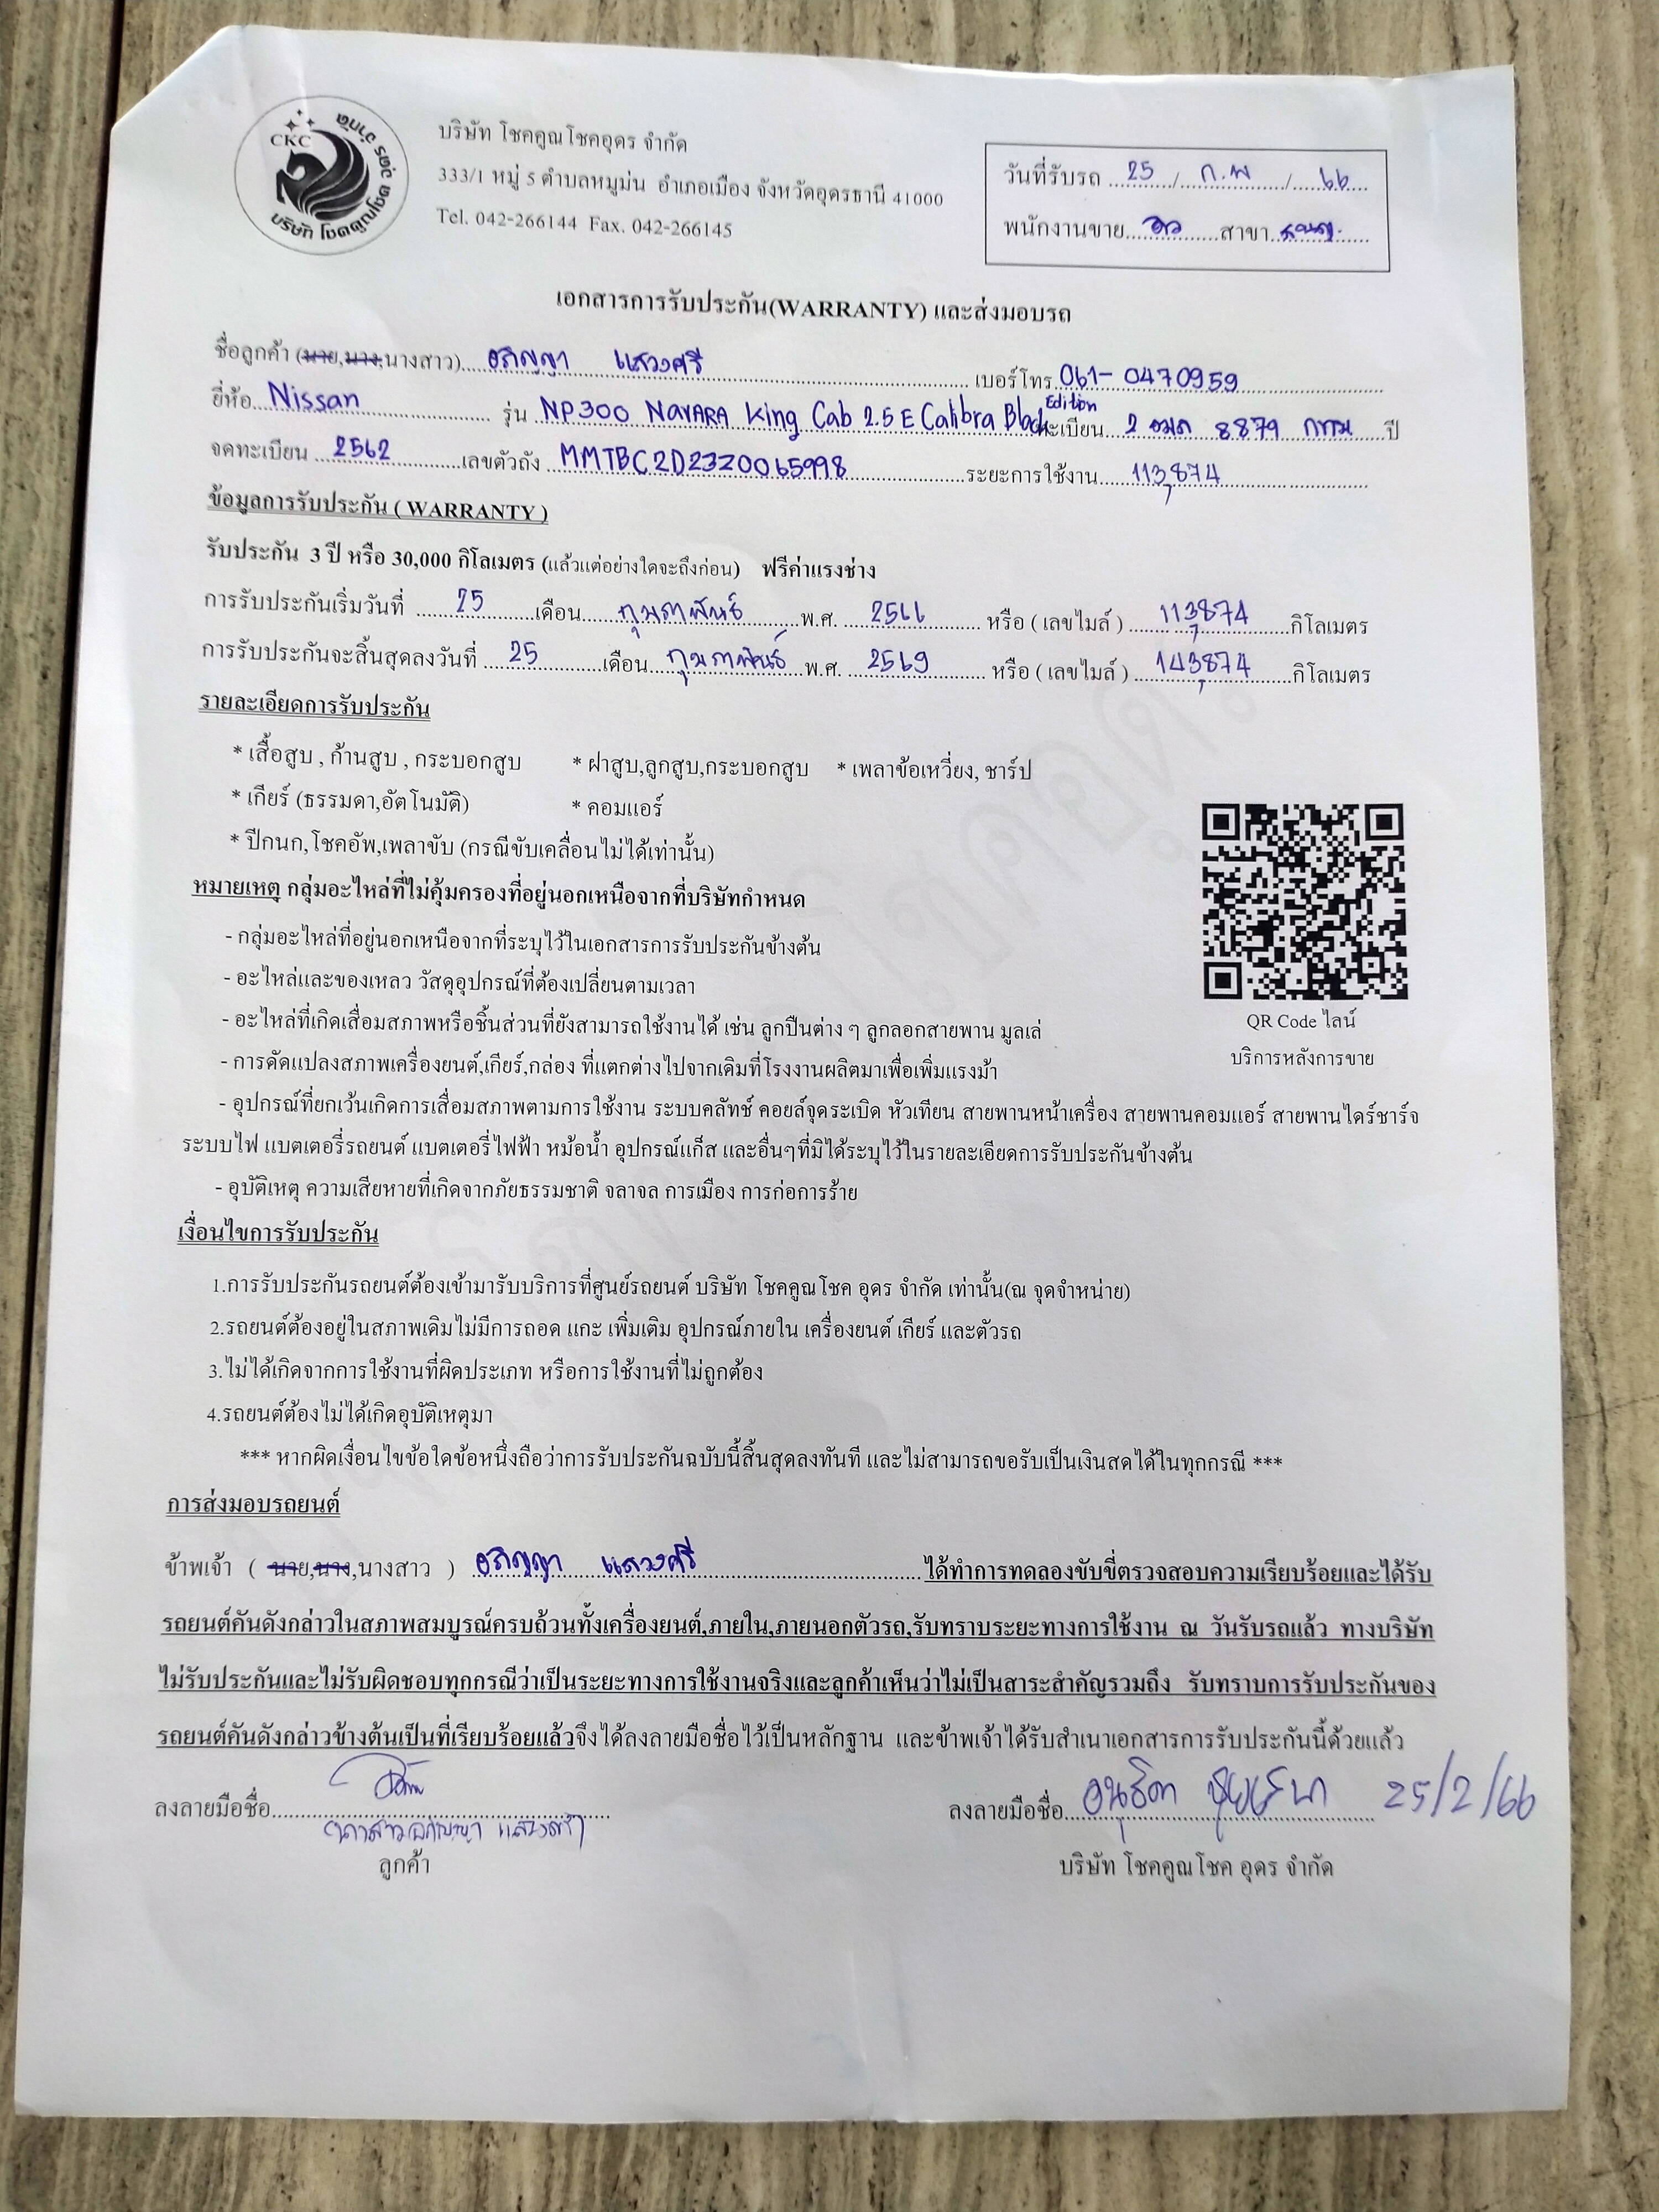 CKC
บริษัท โชคคูณโชค อุดร จำกัด
บริษัท โชคคูณโชคอุดร จำกัด
333/1 หมู่ 5 ตำบลหมูม่น อำเภอเมือง จังหวัดอุดรธานี 41000
Tel. 042-266144 Fax. 042-266145
วันที่รับรถ 25 / ก.พ / 66
พนักงานขาย สาขา
เอกสารการรับประกัน(WARRANTY) และส่งมอบรถ
ชื่อลูกค้า (นาย,นาง,นางสาว) อภิญญา แสวงศรี เบอร์โทร 061-0470959
ยี่ห้อ Nissan รุ่น NP300 NAVARA King Cab 2.5 E Calibra Black Edition ทะเบียน 2 ฒถ 8879 กทม ปี
จดทะเบียน 2562 เลขตัวถัง MMTBC2D23Z0065998 ระยะการใช้งาน 113,874
ข้อมูลการรับประกัน ( WARRANTY )
รับประกัน 3 ปี หรือ 30,000 กิโลเมตร (แล้วแต่อย่างใดจะถึงก่อน) ฟรีค่าแรงช่าง
การรับประกันเริ่มวันที่ 25 เดือน กุมภาพันธ์ พ.ศ. 2566 หรือ ( เลขไมล์ ) 113,874 กิโลเมตร
การรับประกันจะสิ้นสุดลงวันที่ 25 เดือน กุมภาพันธ์ พ.ศ. 2569 หรือ ( เลขไมล์ ) 143,874 กิโลเมตร
รายละเอียดการรับประกัน
* เสื้อสูบ , ก้านสูบ , กระบอกสูบ * ฝาสูบ,ลูกสูบ,กระบอกสูบ * เพลาข้อเหวี่ยง, ชาร์ป
* เกียร์ (ธรรมดา,อัตโนมัติ) * คอมแอร์
* ปีกนก,โชคอัพ,เพลาขับ (กรณีขับเคลื่อนไม่ได้เท่านั้น)
หมายเหตุ กลุ่มอะไหล่ที่ไม่คุ้มครองที่อยู่นอกเหนือจากที่บริษัทกำหนด
- กลุ่มอะไหล่ที่อยู่นอกเหนือจากที่ระบุไว้ในเอกสารการรับประกันข้างต้น
- อะไหล่และของเหลว วัสดุอุปกรณ์ที่ต้องเปลี่ยนตามเวลา
- อะไหล่ที่เกิดเสื่อมสภาพหรือชิ้นส่วนที่ยังสามารถใช้งานได้ เช่น ลูกปืนต่าง ๆ ลูกลอกสายพาน มูลเล่
QR Code ไลน์
บริการหลังการขาย
- การดัดแปลงสภาพเครื่องยนต์,เกียร์,กล่อง ที่แตกต่างไปจากเดิมที่โรงงานผลิตมาเพื่อเพิ่มแรงม้า
- อุปกรณ์ที่ยกเว้นเกิดการเสื่อมสภาพตามการใช้งาน ระบบคลัทช์ คอยล์จุดระเบิด หัวเทียน สายพานหน้าเครื่อง สายพานคอมแอร์ สายพานไดร์ชาร์จ
ระบบไฟ แบตเตอรี่รถยนต์ แบตเตอรี่ไฟฟ้า หม้อน้ำ อุปกรณ์แก็ส และอื่นๆที่มิได้ระบุไว้ในรายละเอียดการรับประกันข้างต้น
- อุบัติเหตุ ความเสียหายที่เกิดจากภัยธรรมชาติ จลาจล การเมือง การก่อการร้าย
เงื่อนไขการรับประกัน
1.การรับประกันรถยนต์ต้องเข้ามารับบริการที่ศูนย์รถยนต์ บริษัท โชคคูณโชค อุดร จำกัด เท่านั้น(ณ จุดจำหน่าย)
2.รถยนต์ต้องอยู่ในสภาพเดิมไม่มีการถอด แกะ เพิ่มเติม อุปกรณ์ภายใน เครื่องยนต์ เกียร์ และตัวรถ
3.ไม่ได้เกิดจากการใช้งานที่ผิดประเภท หรือการใช้งานที่ไม่ถูกต้อง
4.รถยนต์ต้องไม่ได้เกิดอุบัติเหตุมา
*** หากผิดเงื่อนไขข้อใดข้อหนึ่งถือว่าการรับประกันฉบับนี้สิ้นสุดลงทันที และไม่สามารถขอรับเป็นเงินสดได้ในทุกกรณี ***
การส่งมอบรถยนต์
ข้าพเจ้า ( นาย,นาง,นางสาว ) อภิญญา แสวงศรี ได้ทำการทดลองขับขี่ตรวจสอบความเรียบร้อยและได้รับ
รถยนต์คันดังกล่าวในสภาพสมบูรณ์ครบถ้วนทั้งเครื่องยนต์,ภายใน,ภายนอกตัวรถ,รับทราบระยะทางการใช้งาน ณ วันรับรถแล้ว ทางบริษัท
ไม่รับประกันและไม่รับผิดชอบทุกกรณีว่าเป็นระยะทางการใช้งานจริงและลูกค้าเห็นว่าไม่เป็นสาระสำคัญรวมถึง รับทราบการรับประกันของ
รถยนต์คันดังกล่าวข้างต้นเป็นที่เรียบร้อยแล้วจึงได้ลงลายมือชื่อไว้เป็นหลักฐาน และข้าพเจ้าได้รับสำเนาเอกสารการรับประกันนี้ด้วยแล้ว
ลงลายมือชื่อ ลงลายมือชื่อ 25/2/66
นางสาวอภิญญา แสวงศรี
ลูกค้า บริษัท โชคคูณโชค อุดร จำกัด